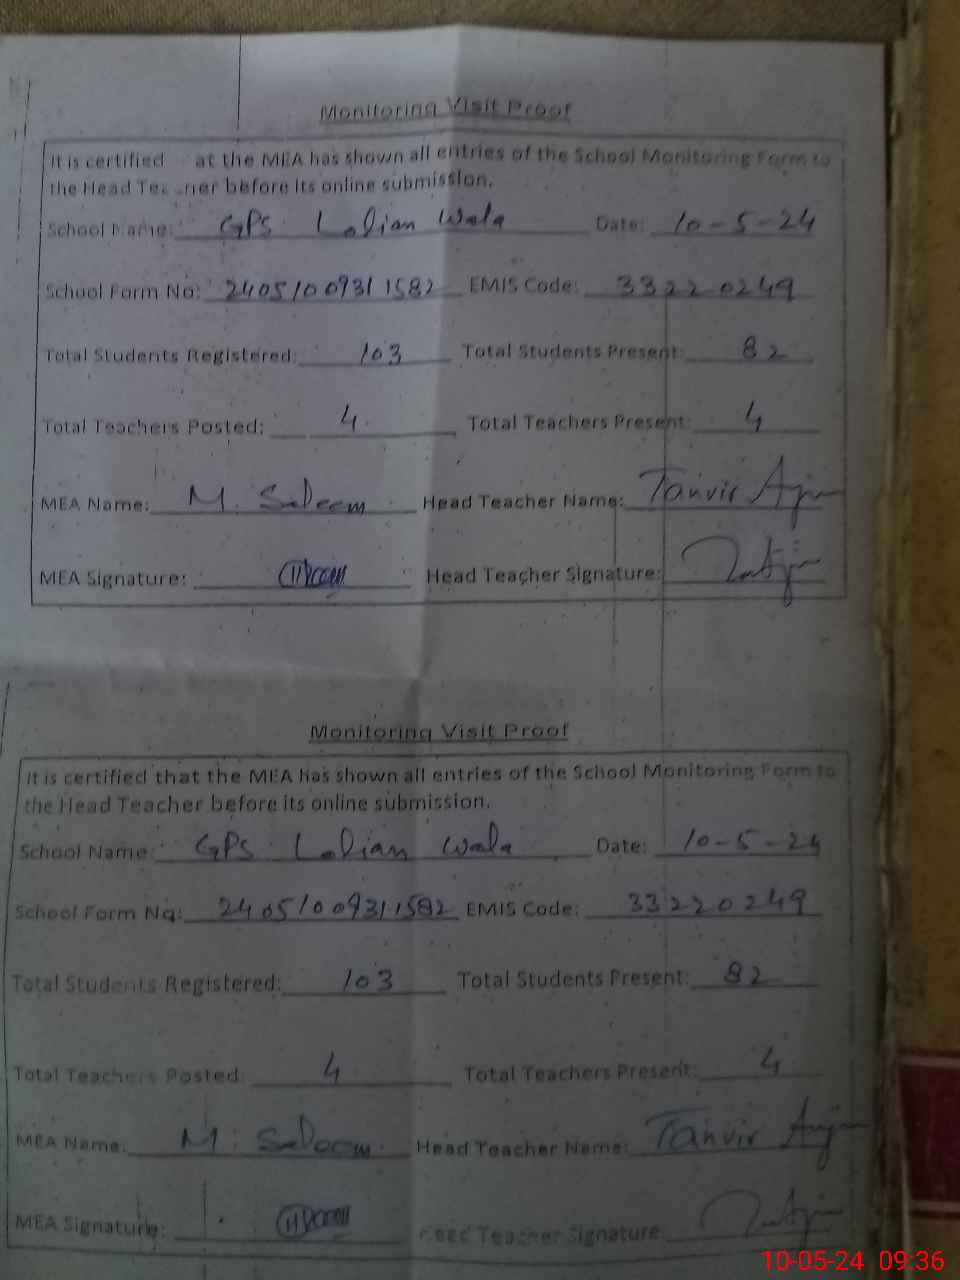 Monitoring Visit Proof
It is certified at the MEA has shown all entries of the School Monitoring Form to
the Head Teacher before its online submission.
School Name: GPS Lalian Wala Date: 10-5-24
School Form No: 24051009311582 EMIS Code: 33220249
Total Students Registered: 103 Total Students Present: 82
Total Teachers Posted: 4 Total Teachers Present: 4
MEA Name: M. Saleem Head Teacher Name: Tanvir Anjum
MEA Signature: Head Teacher Signature:
Monitoring Visit Proof
It is certified that the MEA has shown all entries of the School Monitoring Form to
the Head Teacher before its online submission.
School Name: GPS Lalian Wala Date: 10-5-24
School Form No: 24051009311582 EMIS Code: 33220249
Total Students Registered: 103 Total Students Present: 82
Total Teachers Posted: 4 Total Teachers Present: 4
MEA Name: M. Saleem Head Teacher Name: Tanvir Anjum
MEA Signature: Head Teacher Signature:
10-05-24 09:36